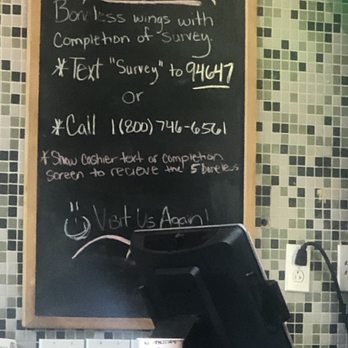 Boneless wings with
Completion of Survey.
*Text "Survey" to 94647
or
*Call 1(800) 746-6561
*Show cashier text or completion
screen to recieve the 5 boneless
Visit Us Again!